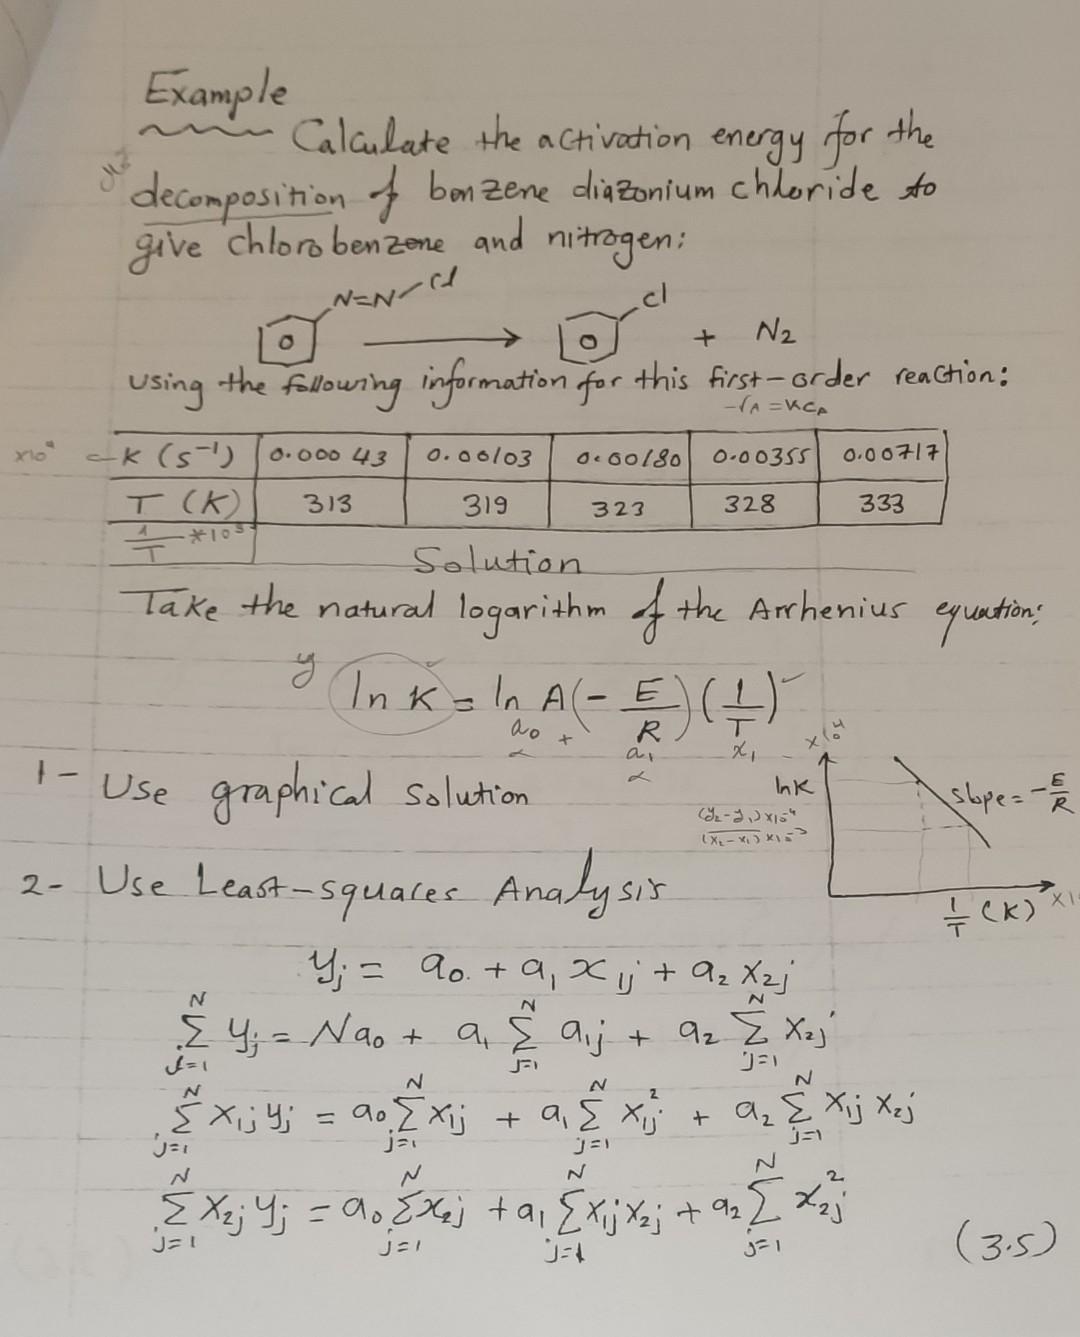 Example
Calculate the activation energy for the
decomposition of benzene diazonium chloride to
give chlorobenzene and nitrogen:
N=N Cl Cl
⟶ + N₂
using the following information for this first-order reaction:
-rA = KCA
K (s⁻¹) 0.00043 0.00103 0.00180 0.00355 0.00717
T (K) 313 319 323 328 333
1/T *10³
Solution
Take the natural logarithm of the Arrhenius equation:
y ln K = ln A (- E/R) (1/T)
a₀ + a₁ x₁
1- Use graphical solution
lnK slope = -E/R
(y₂-y₁)x10⁻⁴ / (x₂-x₁)x10⁻³
1/T (K)
2- Use Least-squares Analysis
yⱼ = a₀ + a₁ x₁ⱼ + a₂ x₂ⱼ
∑ⱼ₌₁ᴺ yⱼ = Na₀ + a₁ ∑ⱼ₌₁ᴺ a₁ⱼ + a₂ ∑ⱼ₌₁ᴺ x₂ⱼ
∑ⱼ₌₁ᴺ x₁ⱼ yⱼ = a₀ ∑ⱼ₌₁ᴺ x₁ⱼ + a₁ ∑ⱼ₌₁ᴺ x₁ⱼ² + a₂ ∑ⱼ₌₁ᴺ x₁ⱼ x₂ⱼ
∑ⱼ₌₁ᴺ x₂ⱼ yⱼ = a₀ ∑ⱼ₌₁ᴺ x₂ⱼ + a₁ ∑ⱼ₌₁ᴺ x₁ⱼ x₂ⱼ + a₂ ∑ⱼ₌₁ᴺ x₂ⱼ²
(3.5)